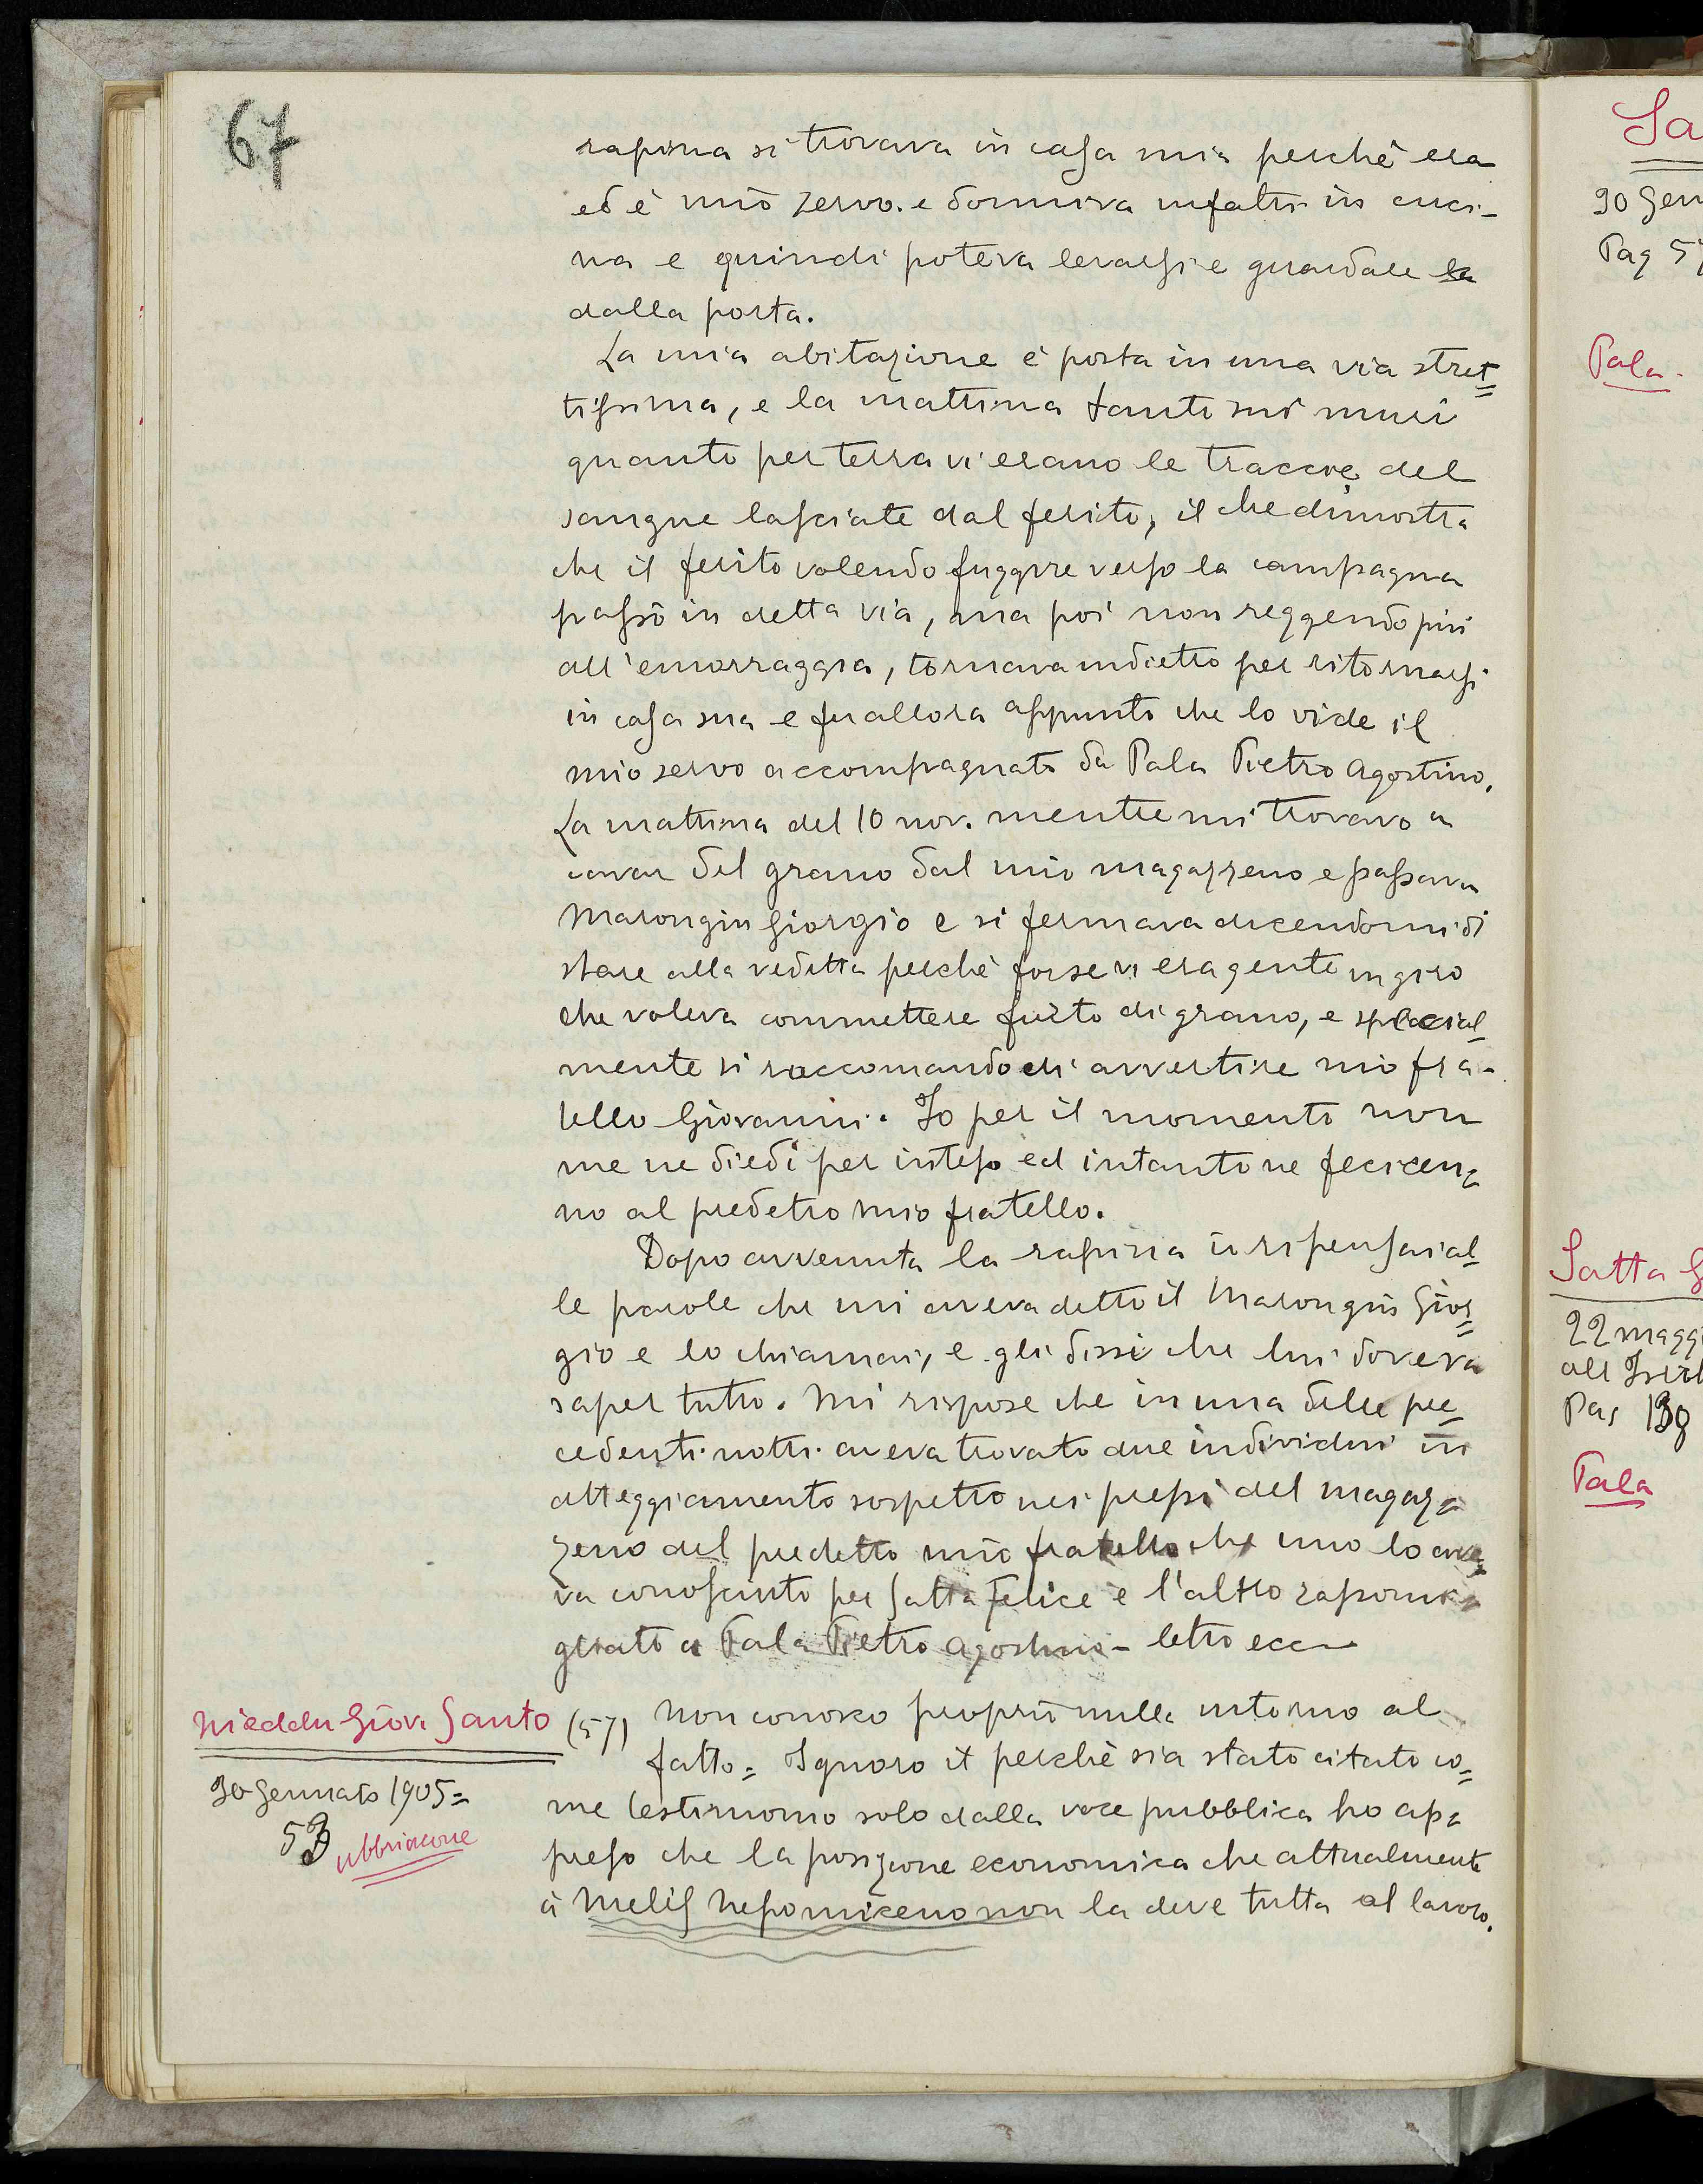 67
rapina si trovava in casa mia perchè era
ed è mio servo e dormiva infatti in cuci-
na e quindi poteva levarsi e guardare la
dalla porta.
La mia abitazione è posta in una via stret=
tissima, e la mattina tanto sui muri
quanto per terra vi erano le traccie del
sangue lasciate dal ferito, il che dimostra
che il ferito volendo fuggire verso la campagna
passò in detta via, ma poi non reggendo più
all'emorraggia, tornava indietro per ritornarsi
in casa sua e fu allora appunto che lo vide il
mio servo accompagnato da Pala Pietro Agostino.
La mattina del 10 nov. mentre mi trovavo a
cavar del grano dal mio magazzeno e passava
Marongiu Giorgio e si fermava dicendomi di
stare alla vedetta perchè forse vi era gente in giro
che voleva commettere furto di grano, e special=
mente si raccomandò di avvertire mio fra-
tello Giovanni. Io per il momento non
me ne diedi per inteso ed intanto ne feci cen=
no al predetto mio fratello.
Dopo avvenuta la rapina io ripensai al=
le parole che mi aveva detto il Marongiu Gior=
gio e lo chiamai, e gli dissi che lui doveva
saper tutto. Mi rispose che in una delle pre=
cedenti notti aveva trovato due individui in
atteggiamento sospetto nei pressi del magaz=
zeno del predetto mio fratello che uno lo ave=
va conosciuto per Satta Felice e l'altro rassomi=
gliato a Pala Pietro Agostino - letto ecc
Nieddu Giov. Santo (57) Non conosco proprio nulla intorno al
30 Gennaio 1905=
57
ubbriacone
fatto= Ignoro il perchè sia stato citato co=
me testimonio solo dalla voce pubblica ho ap=
preso che la posizione economica che attualmente
à Melis Nepomiceno non la deve tutta al lavoro.
Sa
30 Gen
Pag 57
Pala
Satta G
22 magg
Pag
Pala